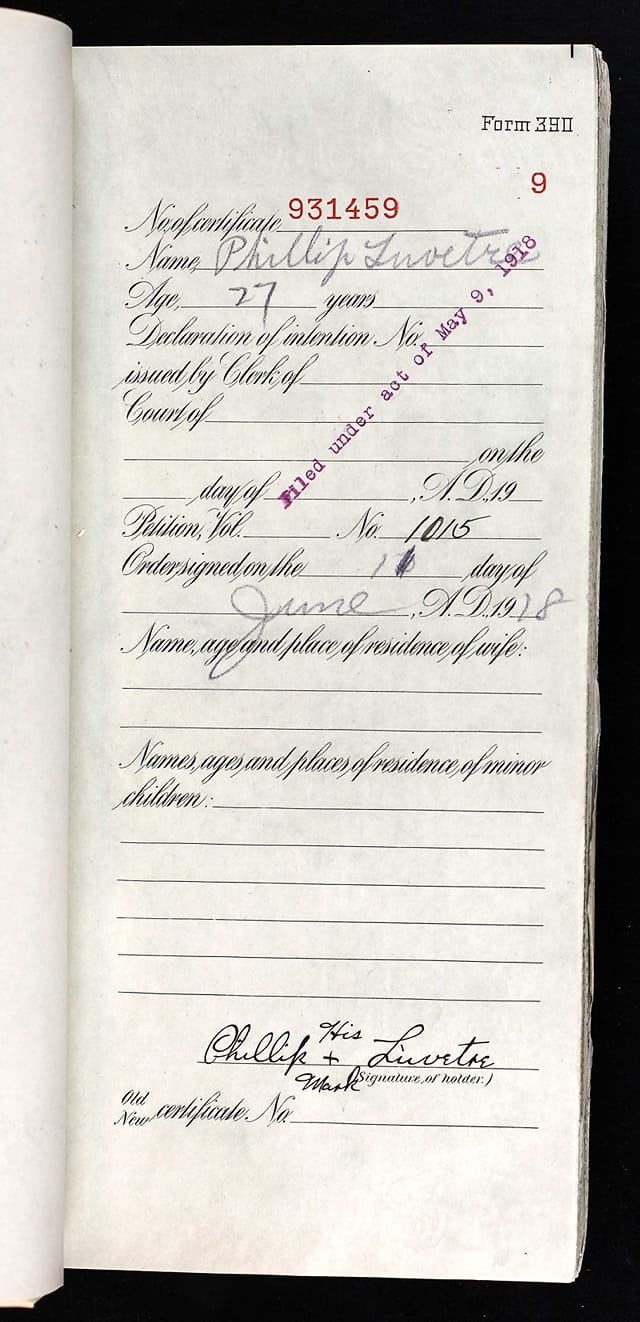 Form 390
9
No. of certificate 931459
Name, Phillip Luvetre
Age, 27 years
Declaration of intention No.
issued by Clerk of
Court of
on the
day of , A.D. 19
Filed under act of May 9, 1918
Petition, Vol. No. 1015
Order signed on the day of
June , A.D. 1918
Name, age and place of residence of wife:
Names, ages and places of residence of minor
children:
Phillip His + Mark Luvetre
(Signature of holder.)
Old
New certificate No.